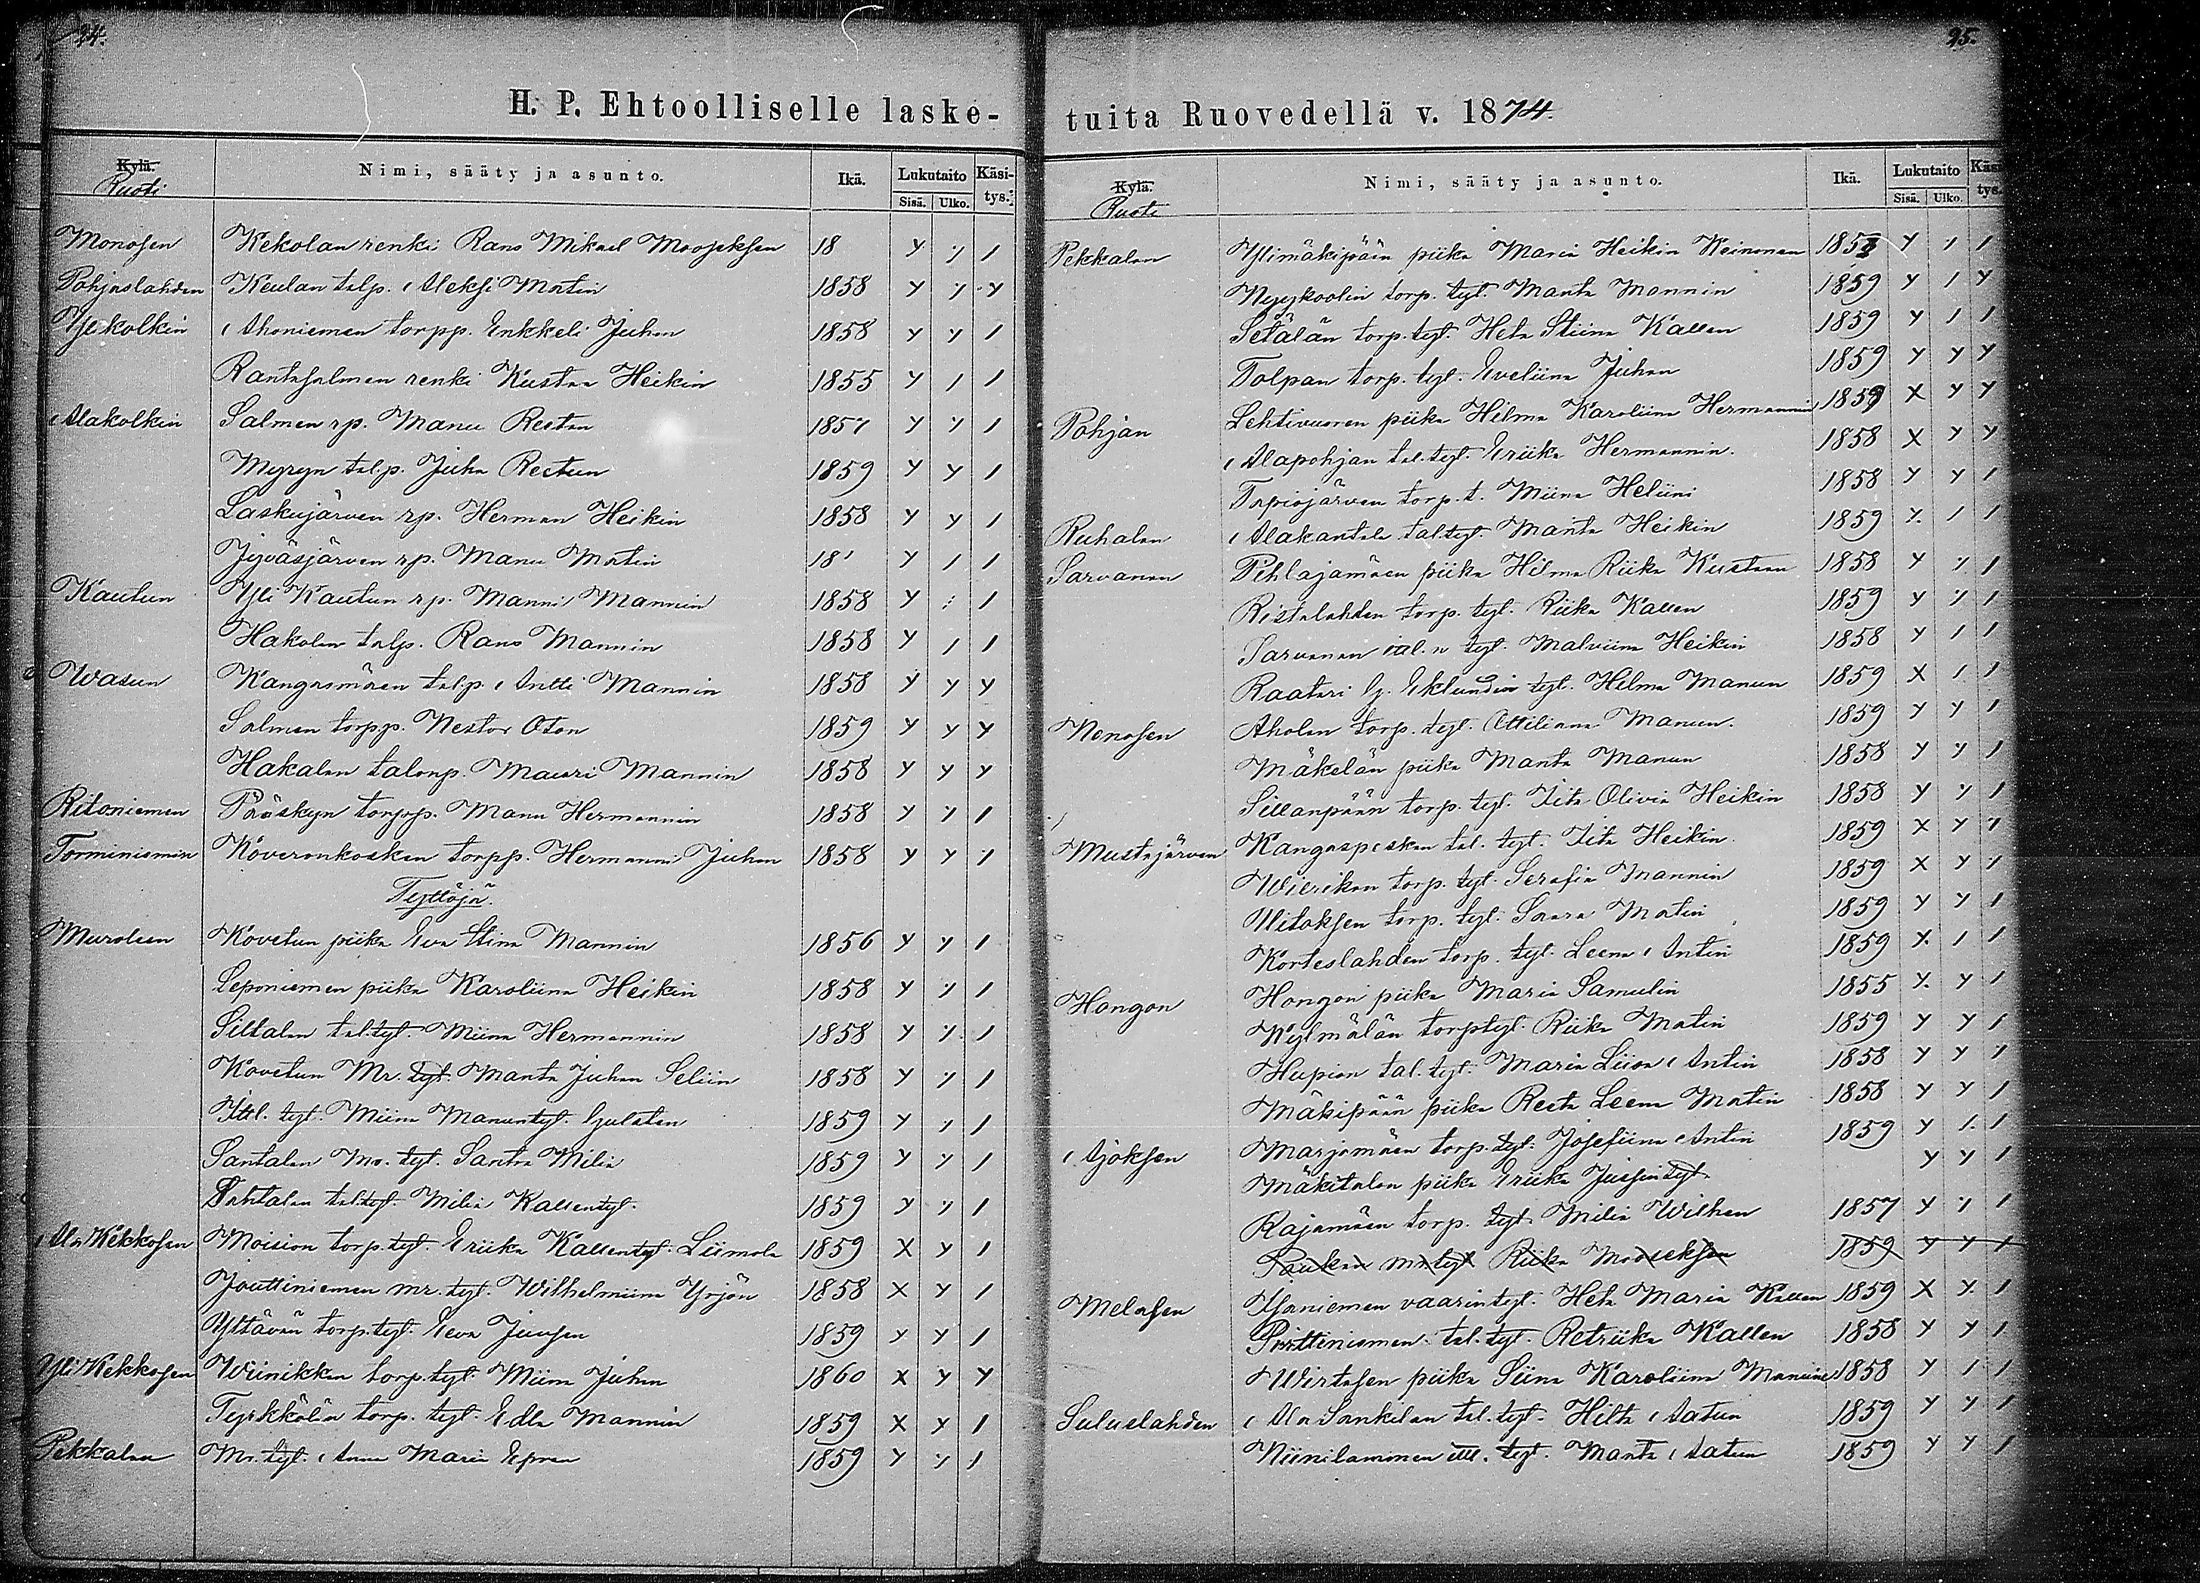 94.
H. P. Ehtoolliselle laske-
Kylä. Ruoti Nimi, sääty ja asunto. Ikä. Lukutaito Käsi-
Sisä. Ulko. tys.
Monosen Kekolan renki Rano Mikael Mooseksen 18 y y 1
Pohjaslahden Keulan talp. Aleksi Matin 1858 y y y
Yl kolkin Ahoniemen torpp. Enkkeli Juhan 1858 y y 1
Rantasalmen renki Kustaa Heikin 1855 y 1 1
Alakolkin Salmen rp. Manu Restan 1857 y y 1
Myryn tal.p. Juha Restun 1859 y y 1
Laskujärven rp. Herman Heikin 1858 y y 1
Jyväsjärven rp. Manu Matin 18 y 1 1
Kautun Yli Kautun rp. Manni Mannin 1858 y : 1
Hakolan talp. Rano Mannin 1858 y 1 1
Wasun Kangasmäen talp. Antti Mannin 1858 y y y
Salmen torpp. Nestor Oton 1859 y y y
Hakalan talonp. Mauri Mannin 1858 y y y
Ritoniemen Pääskyn torpp. Manu Hermannin 1858 y y 1
Torminiemin Koveronkosken torpp. Hermanni Juhan 1858 y y 1
Tyttöjä.
Muroleen Kovetun piika Eva Stina Mannin 1856 y y 1
Leponiemen piika Karoliina Heikin 1858 y y 1
Siltalan tal.tyt. Miina Hermannin 1858 y y 1
Kovetun Mr. tyt. Manta Juhan Seliin 1858 y y 1
Itl. tyt. Miina Manuntyt. 1859 y y 1
Santalan Mr. tyt. Santra Milia 1859 y y 1
Sahtalan tal.tyt. Milia Kallentyt. 1859 y y 1
Ala Kekkosen Moision torp.tyt. Eriika Kallentyt. Liimola 1859 X y 1
Jouttiniemen mr. tyt. Wilhelmiina Yrjön 1858 X y 1
Yltävän torp.tyt. Eeva Juusen 1859 y y 1
Yli Kekkosen Wiinikkan torp.tyt. Miina Juhan 1860 X y y
Tyrkkölän torp. tyt. Edla Mannin 1859 X y 1
Pekkalan Mr. tyt. Anna Maria Epran 1859 y y 1
95.
tuita Ruovedellä v. 1874.
Kylä. Ruoti Nimi, sääty ja asunto. Ikä. Lukutaito Käsi
Sisä. Ulko. tys.
Pekkalan Ylimäkipään piika Maria Heikin Keinonen 1858 y 1 1
Nyykoolin torp. tyt. Manta Mannin 1859 y 1 y
Setälän torp. tyt. Heta Stiina Kallen 1859 y 1 1
Tolpan torp. tyt. Eveliina Juhan 1859 y y y
Pohjan Lehtivuoren piika Hilma Karoliina Hermannin 1859 X y y
Alapohjan tal.tyt. Eriika Hermannin. 1858 X y y
Tapiojärven torp. t. Miina Heliini 1858 y y 1
Ruhalan Alakantala tal.tyt. Manta Heikin 1859 y 1 1
Sarvanan Pihlajamäen piika Hilma Riika Kustaan 1858 y y 1
Ristalahden torp. tyt. Riika Kallen 1859 y y 1
Sarvanan ital. n tyt. Malviina Heikin 1858 y 1 1
Raatari Eklundin tyt. Hilma Manun 1859 X 1 1
Nenosen Aholan torp. tyt. Ottiliana Manun. 1859 y y 1
Mäkelän piika Manta Manun 1858 y y 1
Sillanpään torp. tyt. Iita Olivia Heikin 1858 y y 1
Mustajärven Kangaspeskan tal. tyt. Iita Heikin. 1859 X y y
Wierikon torp. tyt. Serafia Mannin 1859 X y y
Uitoksen torp. tyt. Saara Matin 1859 y y 1
Korteslahden torp. tyt. Leena Antin 1859 y 1 1
Hongon Hongon piika Maria Samulin 1855 y y 1
Kylmälän torptyt. Riika Matin 1859 y y 1
Hupion tal. tyt. Maria Liisa Antin 1858 y y y
Mäkipään piika Reeta Leena Matin 1858 y y 1
Ajöksen Marjomäen torp. tyt. Josefiina Antin 1859 y 1 1
Mäkitalon piika Eriika Jussintyt. y y 1
Rajamäen torp. tyt. Milia Wilhen 1857 y y 1
Paukan mr. tyt Riika Mooseksen 1859 y y 1
Melasen Ysaniemen vaarintyt. Heta Maria Kallen 1859 X y 1
Pirttiniemen tal. tyt. Retriika Kallen 1858 y y 1
Wirtasen piika Siina Karoliina Manun 1858 y 1 1
Suluslahden Ala Sankilan tal. tyt. Hilta Aatun 1859 y y 1
Niinilammen itl. tyt. Manta Aatun 1859 y y 1